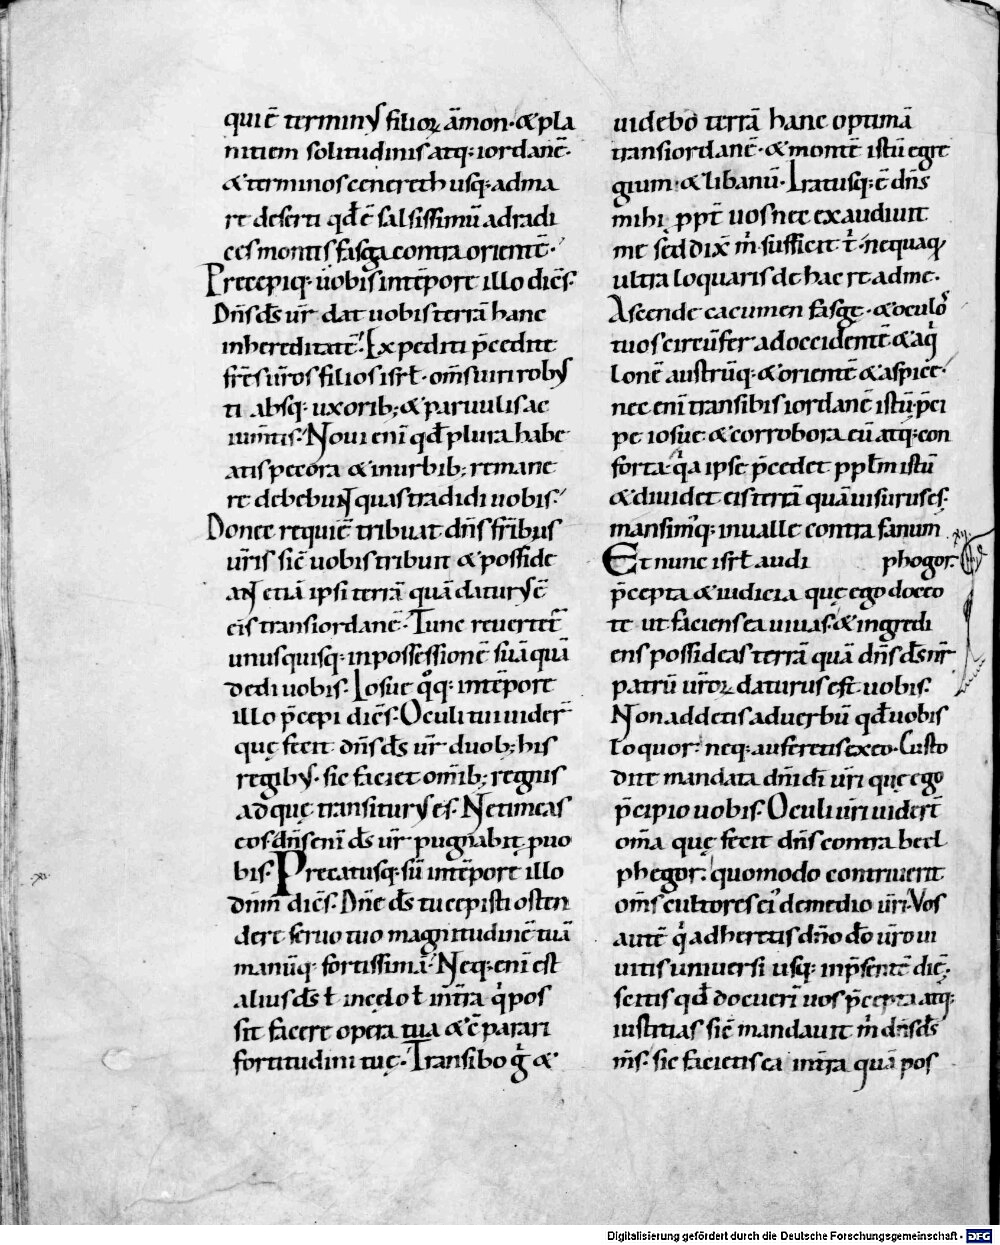 qui ē terminus filioꝝ āmon· & pla
nitiem solitudinis atq; iordanē·
& terminos cenereth usq; ad ma
re deserti qđ ē salsissimū ad radi
ces montis fasga contra orientē·
Precepiq; uobis in tēpore illo dicēs·
Dñs ds̄ ur̄ dat uobis terrā hanc
in hereditatē· Expediti p̄cedite
fr̄s ur̄os filios isrl̄· om̄s uiri robus
ti absq; uxorib; & paruulis ac
iumtis· Noui eni qđ plura habe
atis pecora & in urbib; remane
re debebunt quas tradidi uobis·
Donec requiē tribuat dñs fr̄ibus
ur̄is sic̄ uobis tribuit & posside
ant etiā ipsi terrā quā daturus ē
eis trans iordanē· Tunc reuertet̄
unusquisq; in possessionē suā quā
dedi uobis· Iosue q̊q; in tēpore
illo p̄cepi dicēs· Oculi tui uider̄
quę fecit dñs ds̄ ur̄ duob; his
regibus· sic faciet om̄ib; regnis
ad quę transiturus es· Ne timeas
eos· dñs eni ds̄ ur̄ pugnabit p uo
bis· Precatusq; sū in tēpore illo
dñm dicēs· Dñe ds̄ tu cepisti osten
dere seruo tuo magnitudinē tuā
manūq; fortissimā· Neq; eni est
alius ds̄ ł in cęlo ł in t̄ra q̇ pos
sit facere opera tua & ēparari
fortitudini tuę· Transibo g̊ &
uidebo terrā hanc optimā
trans iordanē· & montē istū egre
gium· & libanū· Iratusq; ē dñs
mihi ppt̄ uos nec exaudiuit
me sed dix̄ m̊· sufficit t̊· nequaq̄
ultra loquaris de hac re ad me·
Ascende cacumen fasgę· & oculo̊
tuos circūfer ad occidentē & aq̊
lonē austrūq; & orientē & aspice·
nec eni transibis iordanē istū· p̄ci
pe iosue & corrobora eū atq; con
forta· q̊a ipse p̄cedet ppl̄m istū
& diuidet eis terrā quā uisurus es·
mansim̓q; in ualle contra fanum
Et nunc isrl̄ audi phogor· .xii.
p̄cepta & iudicia quę ego doceo
te ut faciens ea uiuas· & ingredi
ens possideas terrā quā dñs ds̄ nr̄
patrū ur̄oꝝ daturus est uobis·
Non addetis ad uerbū qđ uobis
loquor· neq; auferetis ex eo· Custo
dite mandata dñi di ur̄i quę ego
p̄cipio uobis· Oculi ur̄i uider̄t
om̄a quę fecit dñs contra beel
phegor· quomodo contriuerit
om̄s cultores ei̓ de medio ur̄i· Vos
autē q̊ adheretis dño dō ur̄o ui
uitis uniuersi usq; in p̄sentē diē·
scitis qđ docueri uos p̄cepta atq;
iustitias sic̄ mandauit m̊ dñs ds̄
m̄s· sic facietis ea in t̄ra quā pos
.xi.
Digitalisierung gefördert durch die Deutsche Forschungsgemeinschaft - DFG